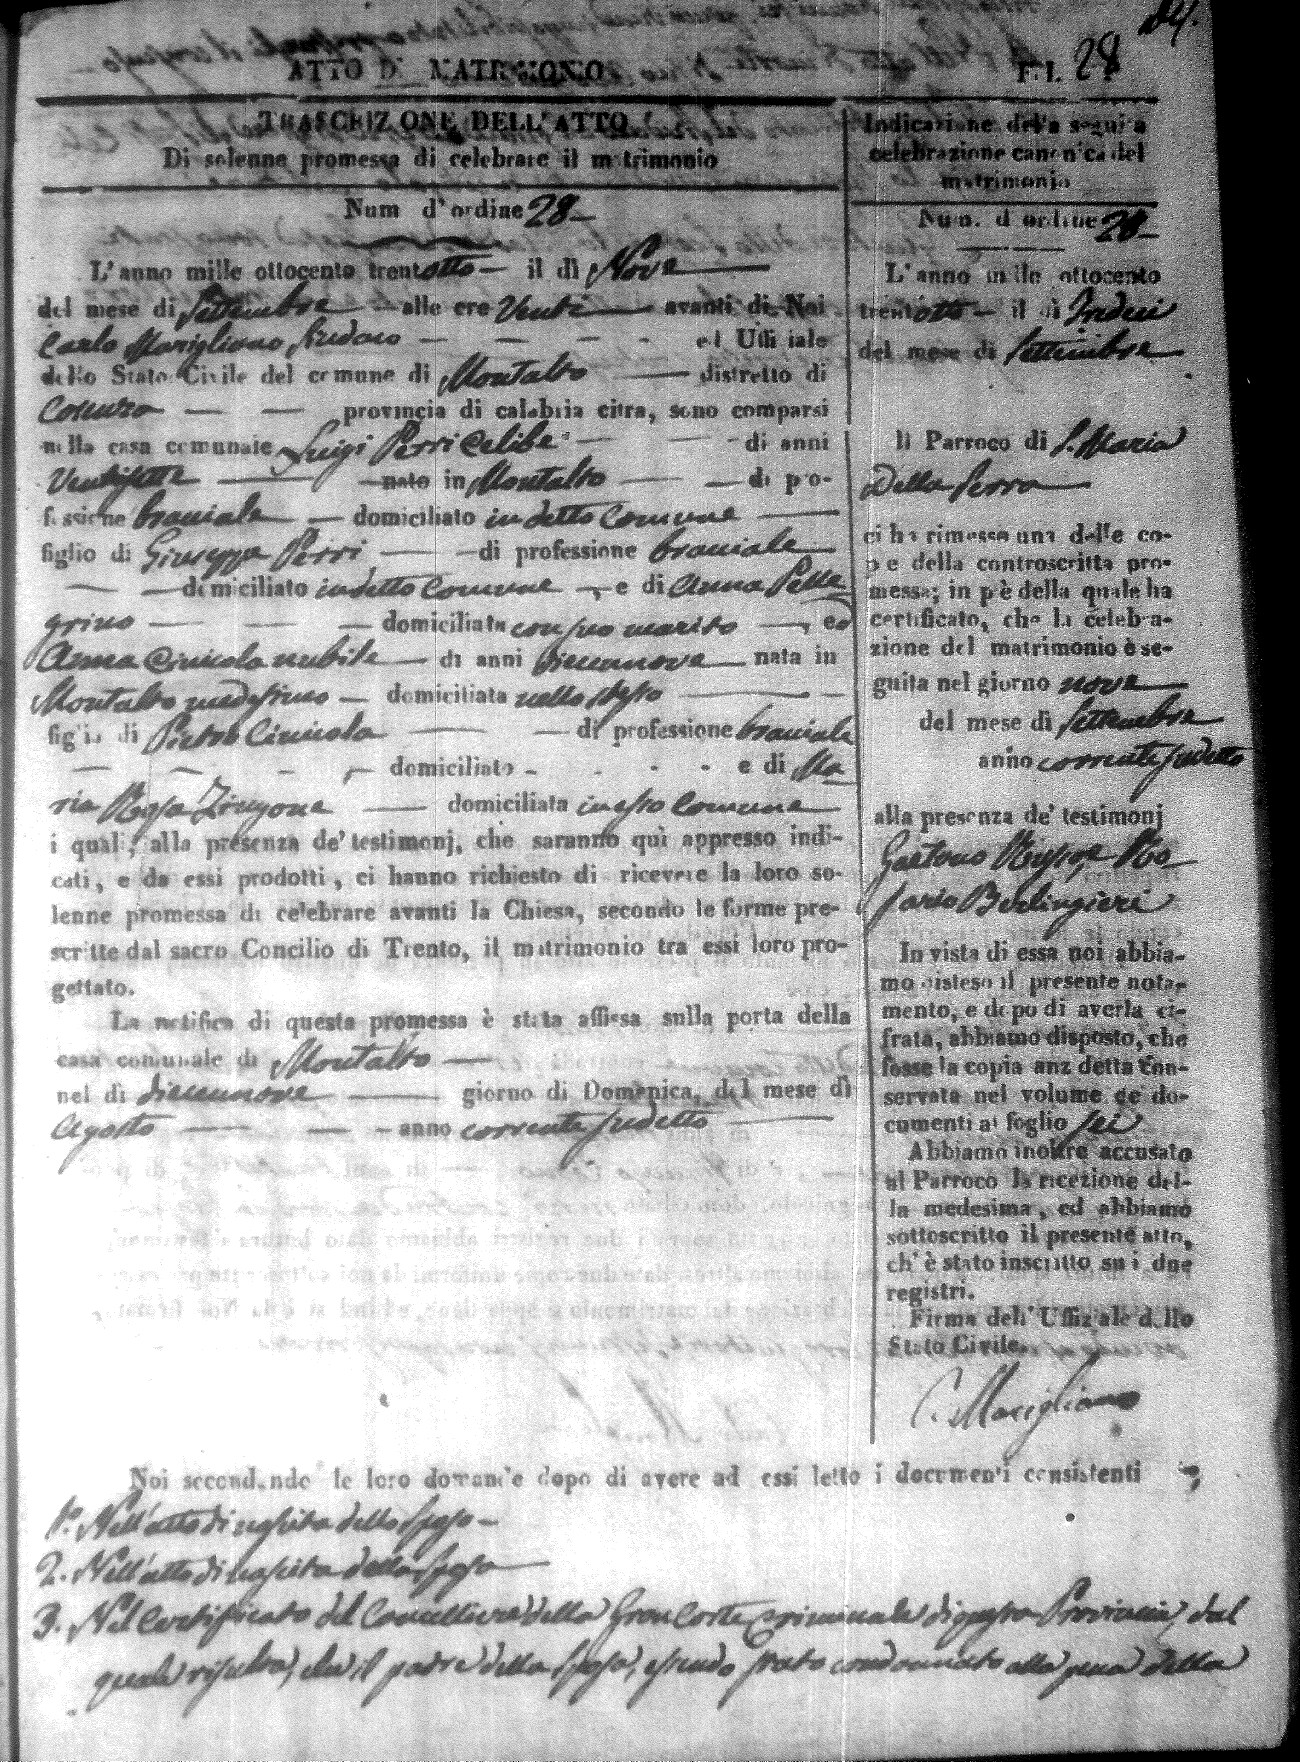 ATTO DI MATRIMONIO
F.I. 28
TRASCRIZIONE DELL'ATTO
Di solenne promessa di celebrare il matrimonio
Num d'ordine 28
L'anno mille ottocento trentotto il dì Nove
del mese di Settembre alle ore Venti avanti di Noi
Carlo Marigliano Sindaco ed Uffiziale
dello Stato Civile del comune di Montalto distretto di
Cosenza provincia di calabria citra, sono comparsi
nella casa comunale Luigi Perri Celibe di anni
Ventisette nato in Montalto di pro-
fessione bracciale domiciliato in detto Comune
figlio di Giuseppe Perri, di professione bracciale
domiciliato in detto Comune, e di Anna Pelle
grino domiciliata con suo marito, ed
Anna Cinicola nubile di anni diecinnove nata in
Montalto medesimo domiciliata nello stesso
figlia di Pietro Cinicola di professione bracciale
domiciliato e di Ma
ria Rosa Zingone domiciliata in esso Comune
i quali, alla presenza de' testimonj, che saranno quì appresso indi-
cati, e da essi prodotti, ci hanno richiesto di ricevere la loro so-
lenne promessa di celebrare avanti la Chiesa, secondo le forme pre-
scritte dal sacro Concilio di Trento, il matrimonio tra essi loro pro-
gettato.
La notifica di questa promessa è stata affissa sulla porta della
casa comunale di Montalto
nel dì diecinnove giorno di Domenica, del mese dì
Agosto anno corrente sudetto
Indicazione della seguita
celebrazione canonica del
matrimonio
Num. d'ordine 28
L'anno mille ottocento
trentotto il dì Tredici
del mese di Settembre
Il Parroco di S. Maria
Della Serra
ci ha rimesso una delle co-
pie della controscritta pro-
messa; in piè della quale ha
certificato, che la celebra-
zione del matrimonio è se-
guita nel giorno nove
del mese di Settembre
anno corrente sudetto
alla presenza de' testimonj
Gaetano Ro
sario Berlingieri
In vista di essa noi abbia-
mo disteso il presente nota-
mento, e dopo di averla ci-
frata, abbiamo disposto, che
fosse la copia anzidetta con-
servata nel volume de' do-
cumenti al foglio sei
Abbiamo inoltre accusato
al Parroco la ricezione del-
la medesima, ed abbiamo
sottoscritto il presente atto,
ch' è stato inscritto su i due
registri.
Firma dell' Uffiziale dello
Stato Civile.
C. Marigliano
Noi secondando le loro domande dopo di avere ad essi letto i documenti consistenti
1.o Nell'atto di nascita dello sposo
2. Nell'atto di nascita della sposa
3. Nel Certificato del Cancelliere della Gran Corte Criminale di questa Provincia, dal
quale risulta, che il padre della sposa, essendo stato condannato alla pena della